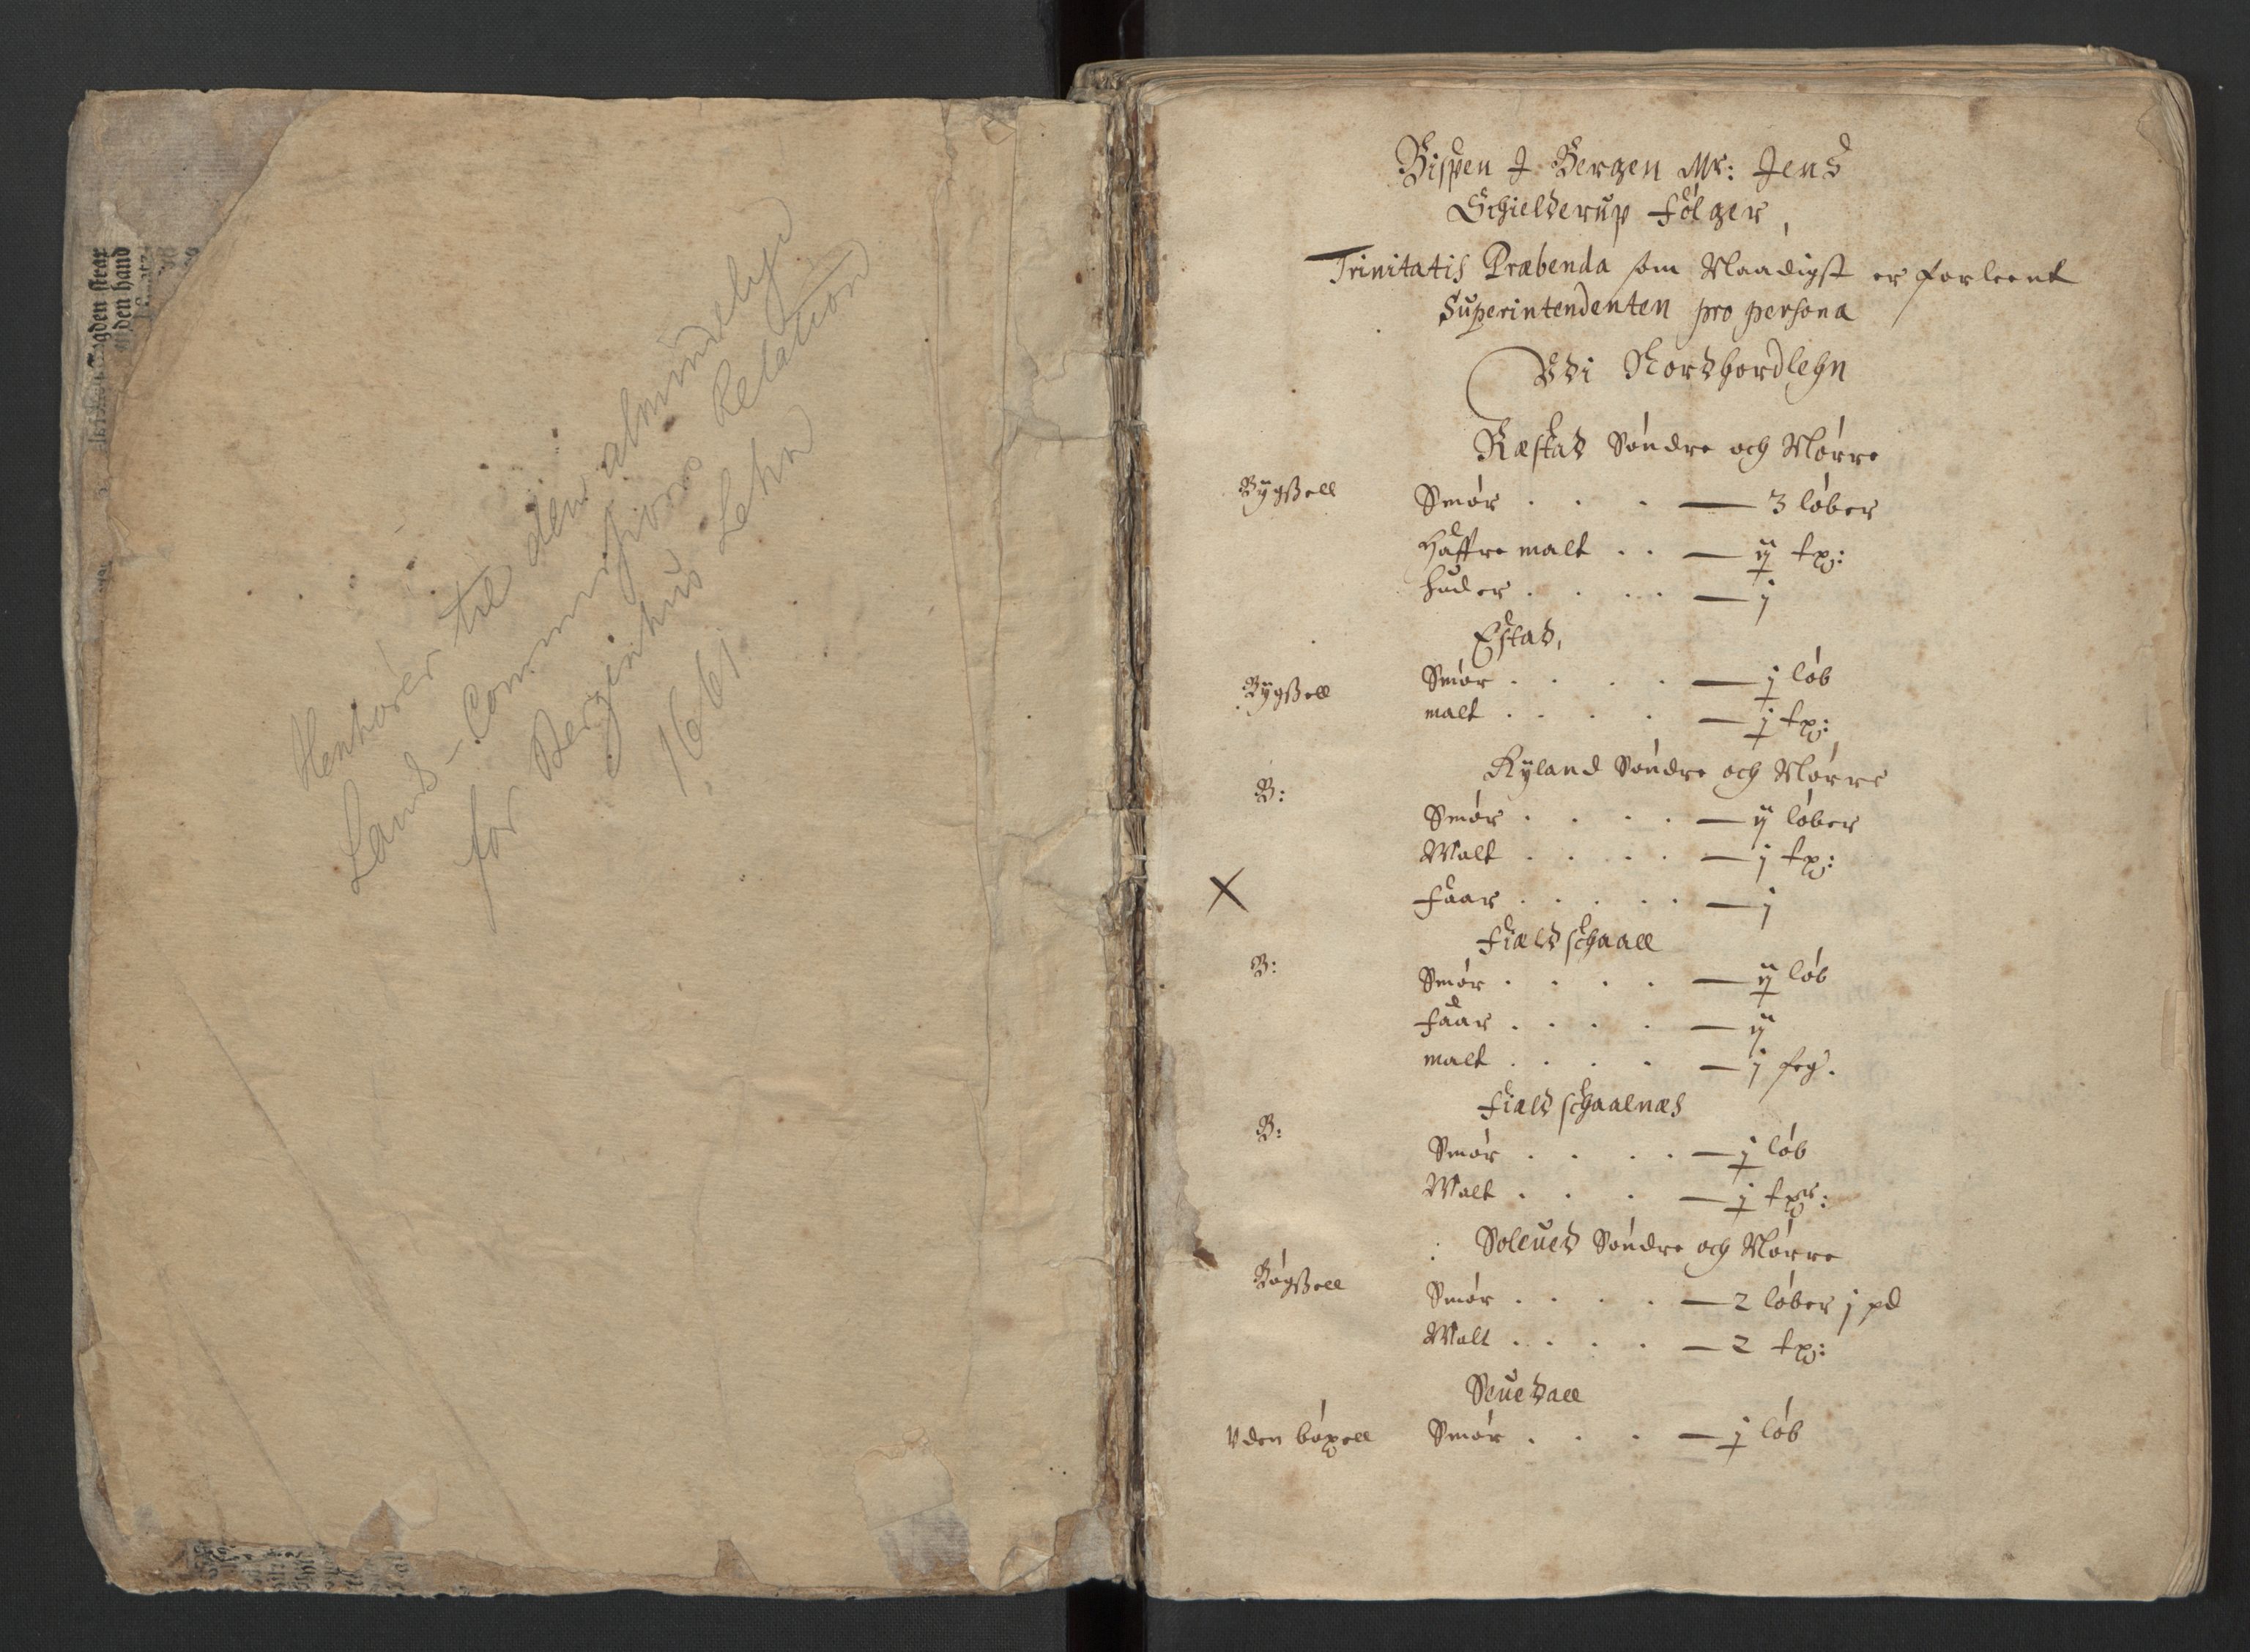 Henhører til den almindelige
Land-Commissions Relation
for Bergenhus Lehn
1661
gden strax
den hand
Bispen J Bergen Mr: Jens
Schielderup følger,
Trinitatis Præbenda som Naadigst er forleent
Superintendenten pro persona
Vdi Nordhordlehn
Ræstad Søndre och Nørre
Bÿgßell Smør . . . — 3 løber
Haffre malt . . — ÿ tp:
huder . . . . — j
Estad,
Bÿgßell Smør . . . . — j løb
malt . . . . — j tp:
Ryland Søndre och Nørre
B: Smør . . . . — ÿ løber
Malt . . . . — j tp:
X Faar . . . . . — j
Fieldschaall
B: Smør . . . . — ÿ løb
Faar . . . . — ÿ
malt . . . . — j
Fieldschaalnæs
B: Smør . . . . — j løb
Malt . . . — j tp:
Soleued Søndre och Nørre
Bøgßell Smør . . . . — 2 løber j pd
Malt . . . . — 2 tp:
Seuedall
Vden bøxell Smør . . . — j løb